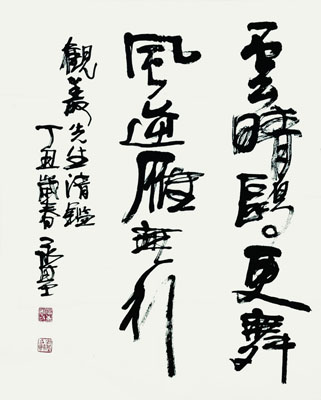 雲晴鷗更舞
風逆雁無行
觀義先生清鑑
丁丑歲春